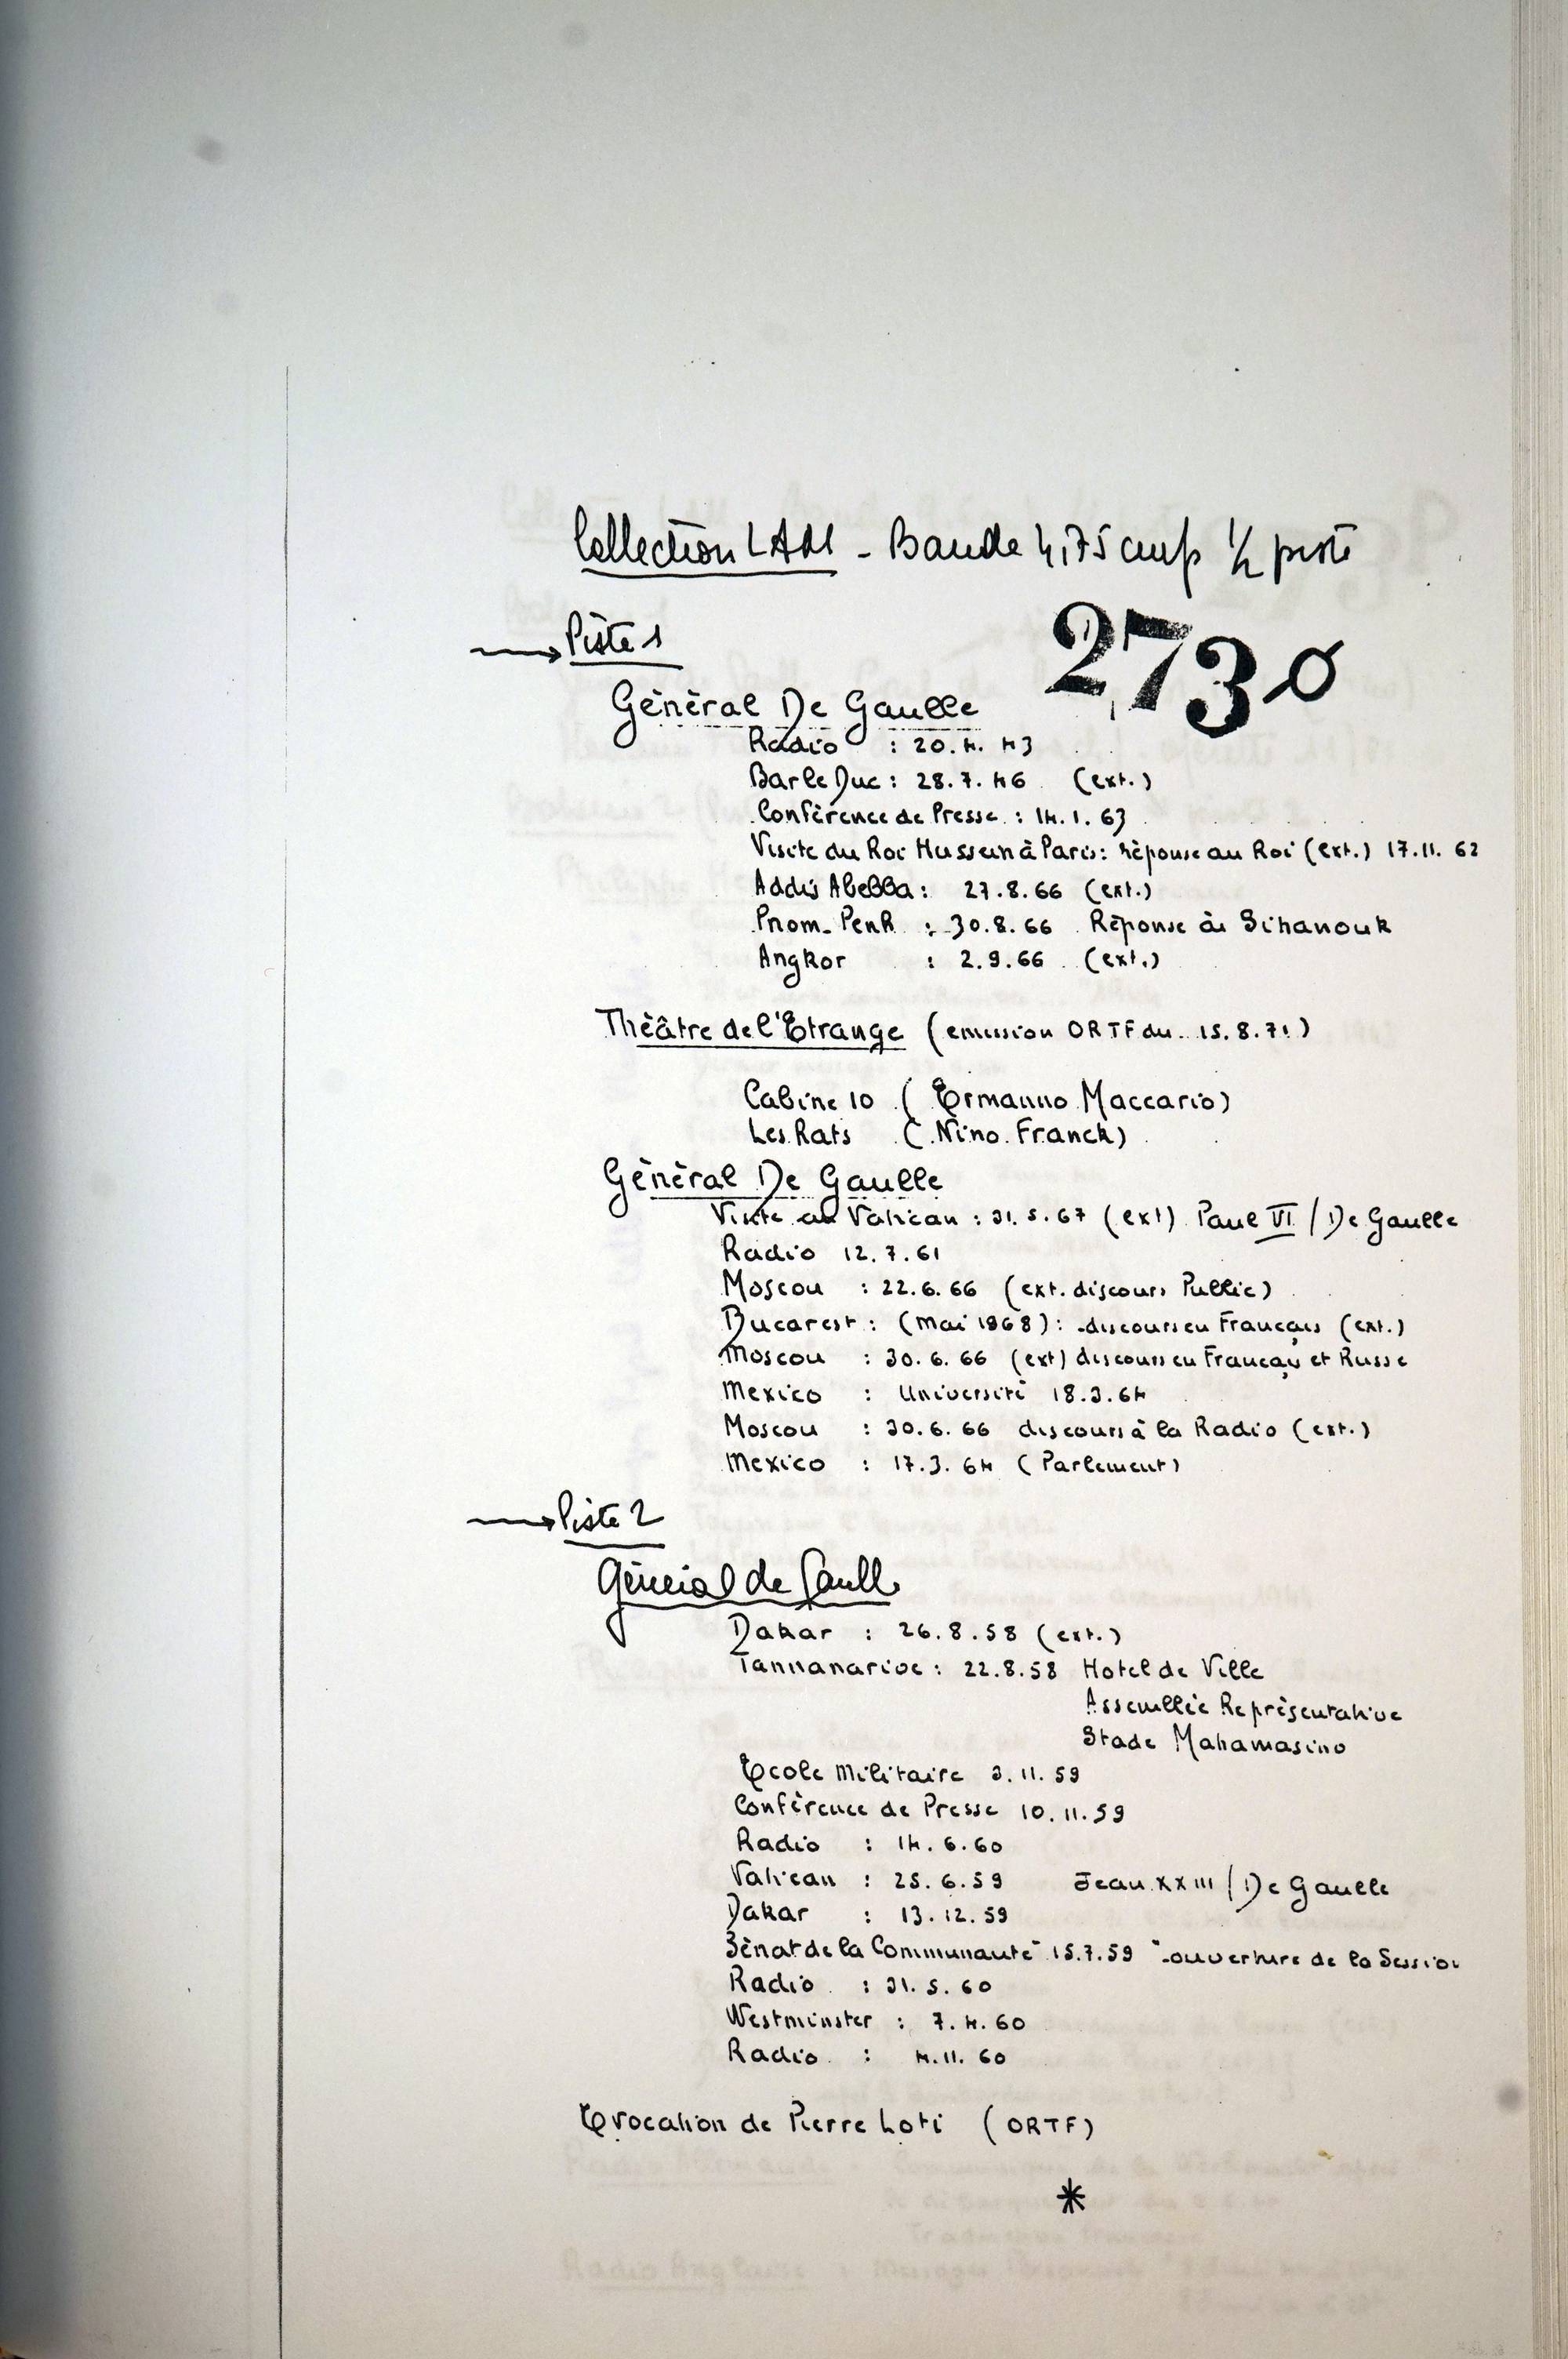 Collection LAM - Bande 4,75 cm/s ½ piste
2730
→ Piste 1
Général De Gaulle
Radio : 20.4.43
Bar le Duc : 28.7.46 (ext.)
Conférence de Presse : 14.1.63
Visite du Roi Hussein à Paris : réponse au Roi (ext.) 17.11.62
Addis Abebba : 27.8.66 (ext.)
Pnom-Penh : 30.8.66 Réponse à Sihanouk
Angkor : 2.9.66 (ext.)
Théâtre de l'Etrange (emission ORTF du 15.8.71)
Cabine 10 (Ermanno Maccario)
Les Rats (Nino Franck)
Général De Gaulle
Visite au Vatican : 31.5.67 (ext) Paul VI / De Gaulle
Radio 12.7.61
Moscou : 22.6.66 (ext. discours Public)
Bucarest : (mai 1968) : discours en Français (ext.)
Moscou : 30.6.66 (ext) discours en Français et Russe
Mexico : Université 18.3.64
Moscou : 30.6.66 discours à la Radio (ext.)
Mexico : 17.3.64 (Parlement)
→ Piste 2
Général de Gaulle
Dakar : 26.8.58 (ext.)
Tannanarive : 22.8.58 Hotel de Ville
Assemblée Représentative
Stade Mahamasino
Ecole Militaire 3.11.59
Conférence de Presse 10.11.59
Radio : 14.6.60
Vatican : 25.6.59 Jean XXIII / De Gaulle
Dakar : 13.12.59
Sénat de la Communauté 15.7.59 - ouverture de la Session
Radio : 31.5.60
Westminster : 7.4.60
Radio : 4.11.60
Evocation de Pierre Loti (ORTF)
*